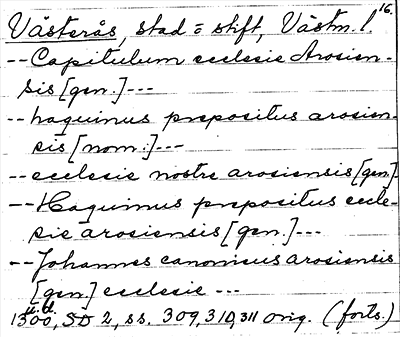 16.
Västerås, stad = stift, Västm. l.
-- Capitulum ecclesie Arosien-
sis [gen.] ---
-- haquinus prepositus arosien-
sis [nom.] ---
-- ecclesie nostre arosiensis [gen.]
-- Haquinus prepositus eccle-
sie arosiensis [gen.] ---
-- Johannes canonicus arosiensis
[gen.] ecclesie ---
u. d.
1300, SD 2, ss. 309, 310, 311 orig. (forts.)